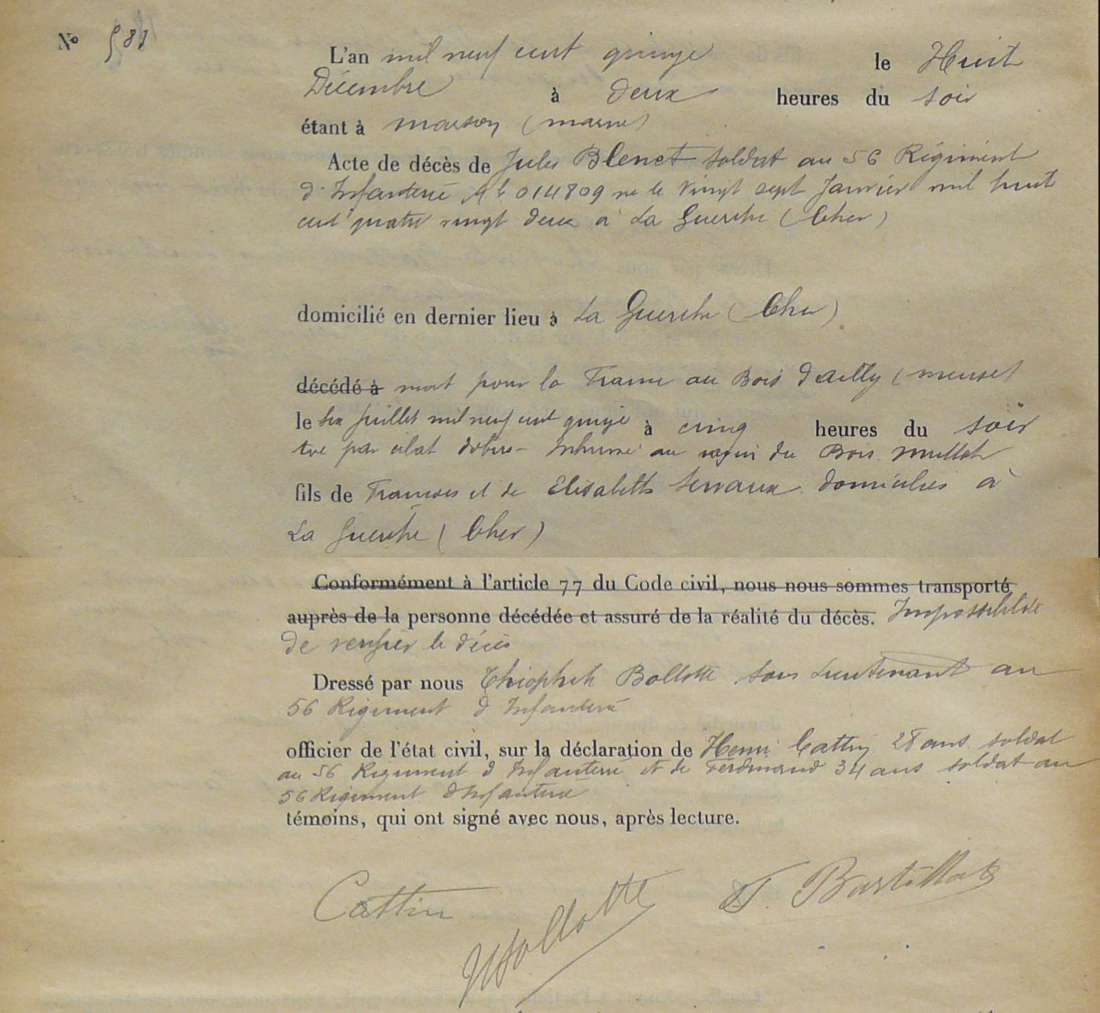 N° 581
L'an mil neuf cent quinze le Huit
Décembre à deux heures du soir
étant à (marne)
Acte de décès de Jules Blenet soldat au 56 Régiment
d'Infanterie Mle 014809 né le vingt sept Janvier mil huit
cent quatre vingt deux à La Guerche (Cher)
domicilié en dernier lieu à La Guerche (Cher)
décédé à mort pour la France au Bois d'ailly (meuse)
le six juillet mil neuf cent quinze à cinq heures du soir
tué par eclat dobus - Inhumé au ravin du Bois mullot
fils de Francois et de Elisabeth domiciliés à
La Guerche (Cher)
Conformément à l'article 77 du Code civil, nous nous sommes transporté
auprès de la personne décédée et assuré de la réalité du décès. Impossibilité
de verifier le décès
Dressé par nous Bollotte sous Lieutenant au
56 Régiment d Infanterie
officier de l'état civil, sur la déclaration de Henri Cattin 28 ans soldat
au 56 Regiment d Infanterie et de Ferdinand 34 ans soldat au
56 Régiment d'Infanterie
témoins, qui ont signé avec nous, après lecture.
Cattin Bollotte